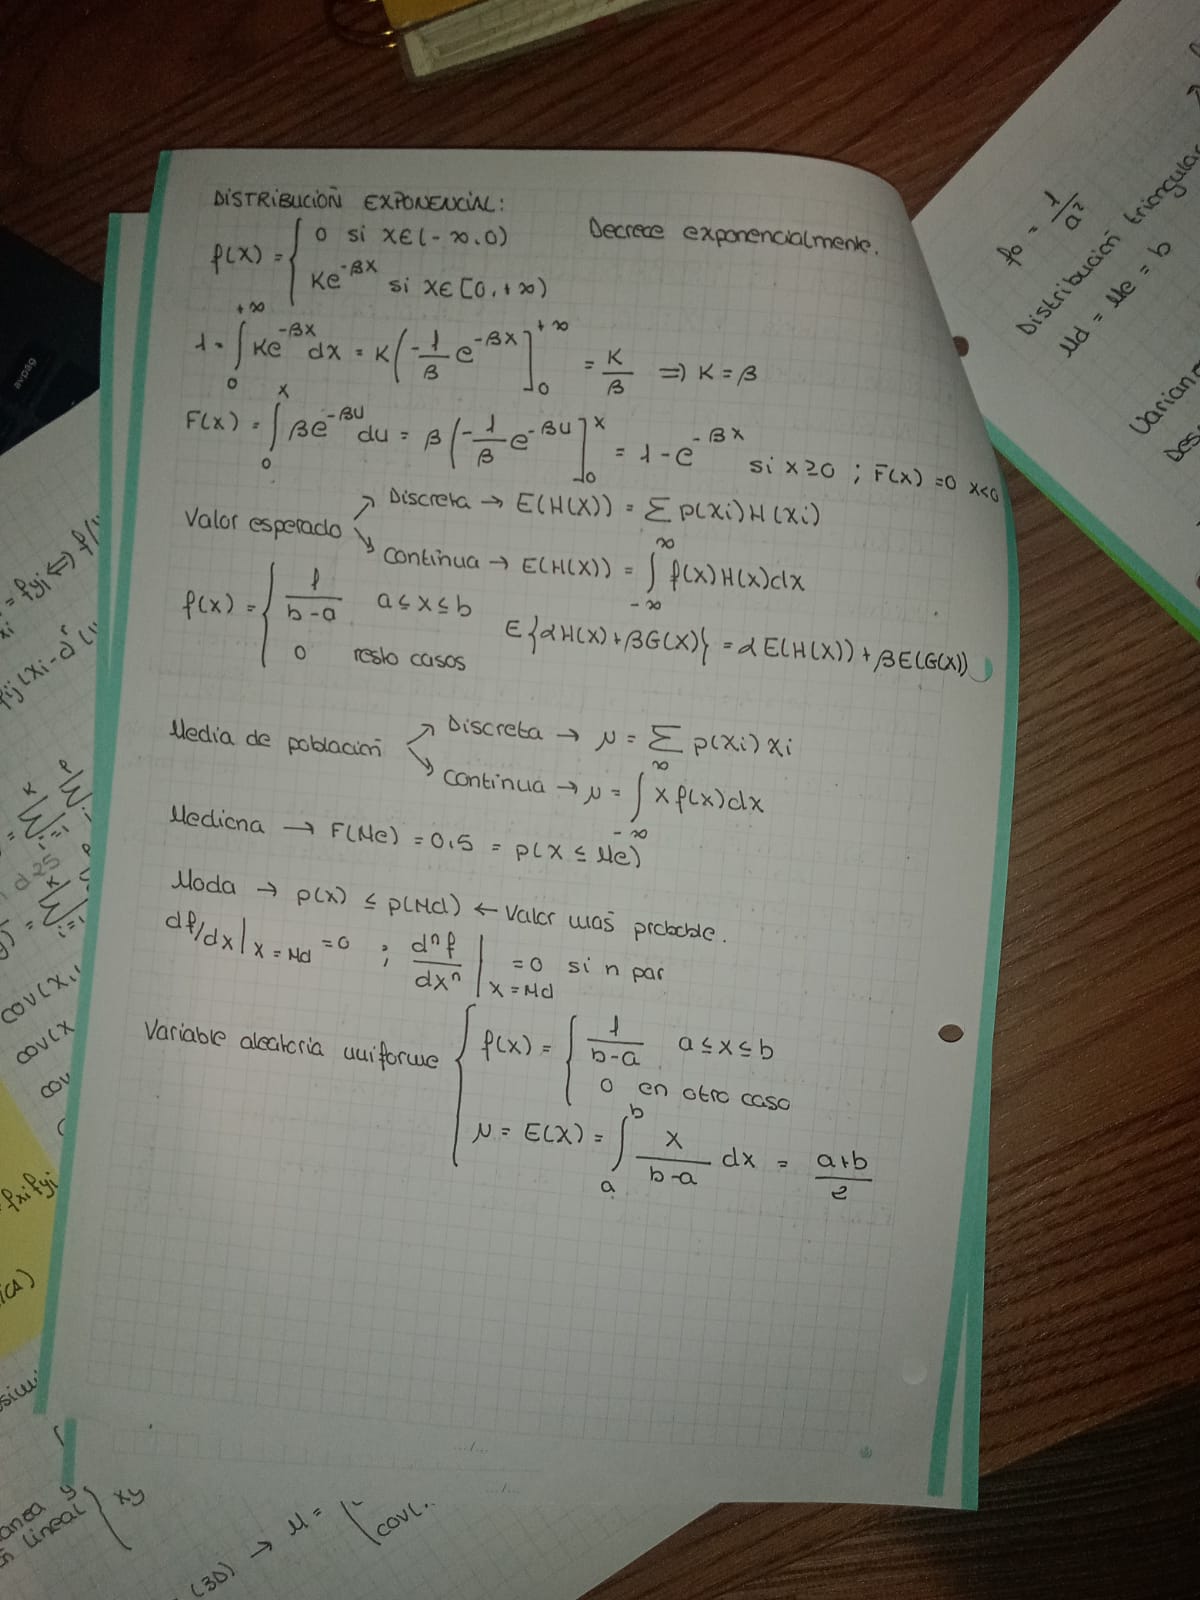 DISTRIBUCIÓN EXPONENCIAL:
f(x) = { 0 si x∈(-∞,0)
Ke^-βx si x∈[0,+∞)
Decrece exponencialmente.
1 = ∫₀^+∞ Ke^-βx dx = K(-1/β e^-βx]₀^+∞ = K/β => K = β
F(x) = ∫₀^x βe^-βu du = β(-1/β e^-βu]₀^x = 1-e^-βx si x≥0 ; F(x)=0 x<0
Valor esperado
↗ Discreta → E(H(X)) = Σ p(xi)H(xi)
↘ continua → E(H(X)) = ∫_-∞^∞ f(x)H(x)dx
f(x) = { 1/b-a a≤x≤b
0 resto casos
E{αH(x)+βG(x)} = αE(H(x))+βE(G(x))
Media de población
↗ Discreta → μ = Σ p(xi) xi
↘ continua → μ = ∫_-∞^∞ x f(x)dx
Mediana → F(Me) = 0,5 = p(x ≤ Me)
Moda → p(x) ≤ p(Md) ← Valor más probable.
df/dx|x=Md =0 ; dⁿf/dxⁿ |x=Md =0 si n par
Variable aleatoria uniforme { f(x) = { 1/b-a a≤x≤b
0 en otro caso
μ = E(X) = ∫ₐ^b x/b-a dx = a+b/2
fo = 1/a²
Distribución triangular
Md = Me = b
avpag
= fyj ⇔ f/
cov(x,
cov(x
cov
fxi fyj
lineal } xy
(3D) → μ = (
cov(